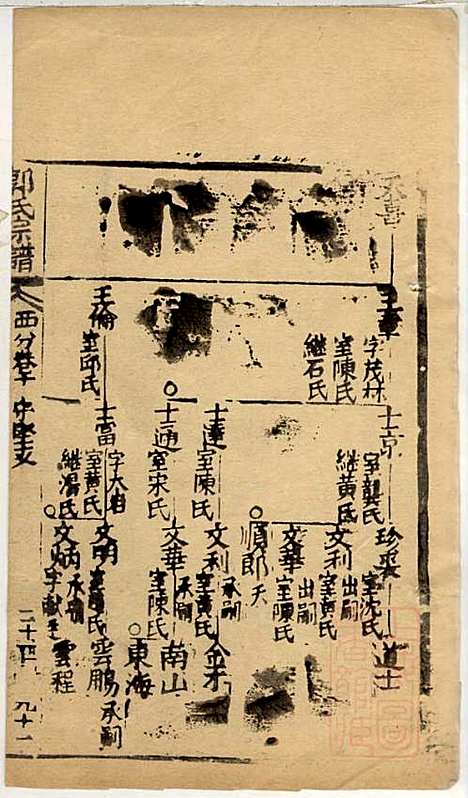 玉章
字茂林
室陳氏
繼石氏
士京
室龔氏
繼黃氏
珍癸
室沈氏
道士
文利
出嗣
室黃氏
文華
出嗣
室陳氏
順郎
夭
士達
室陳氏
文利
承嗣
室黃氏
金才
士通
室宋氏
文華
承嗣
室陳氏
南山
東海
玉倫
室邱氏
士富
字大
室黃氏
繼湯氏
文明
雲鵬
承嗣
文炳
承嗣
雲程
郭氏宗譜
西分卷
中
二十四
九十一